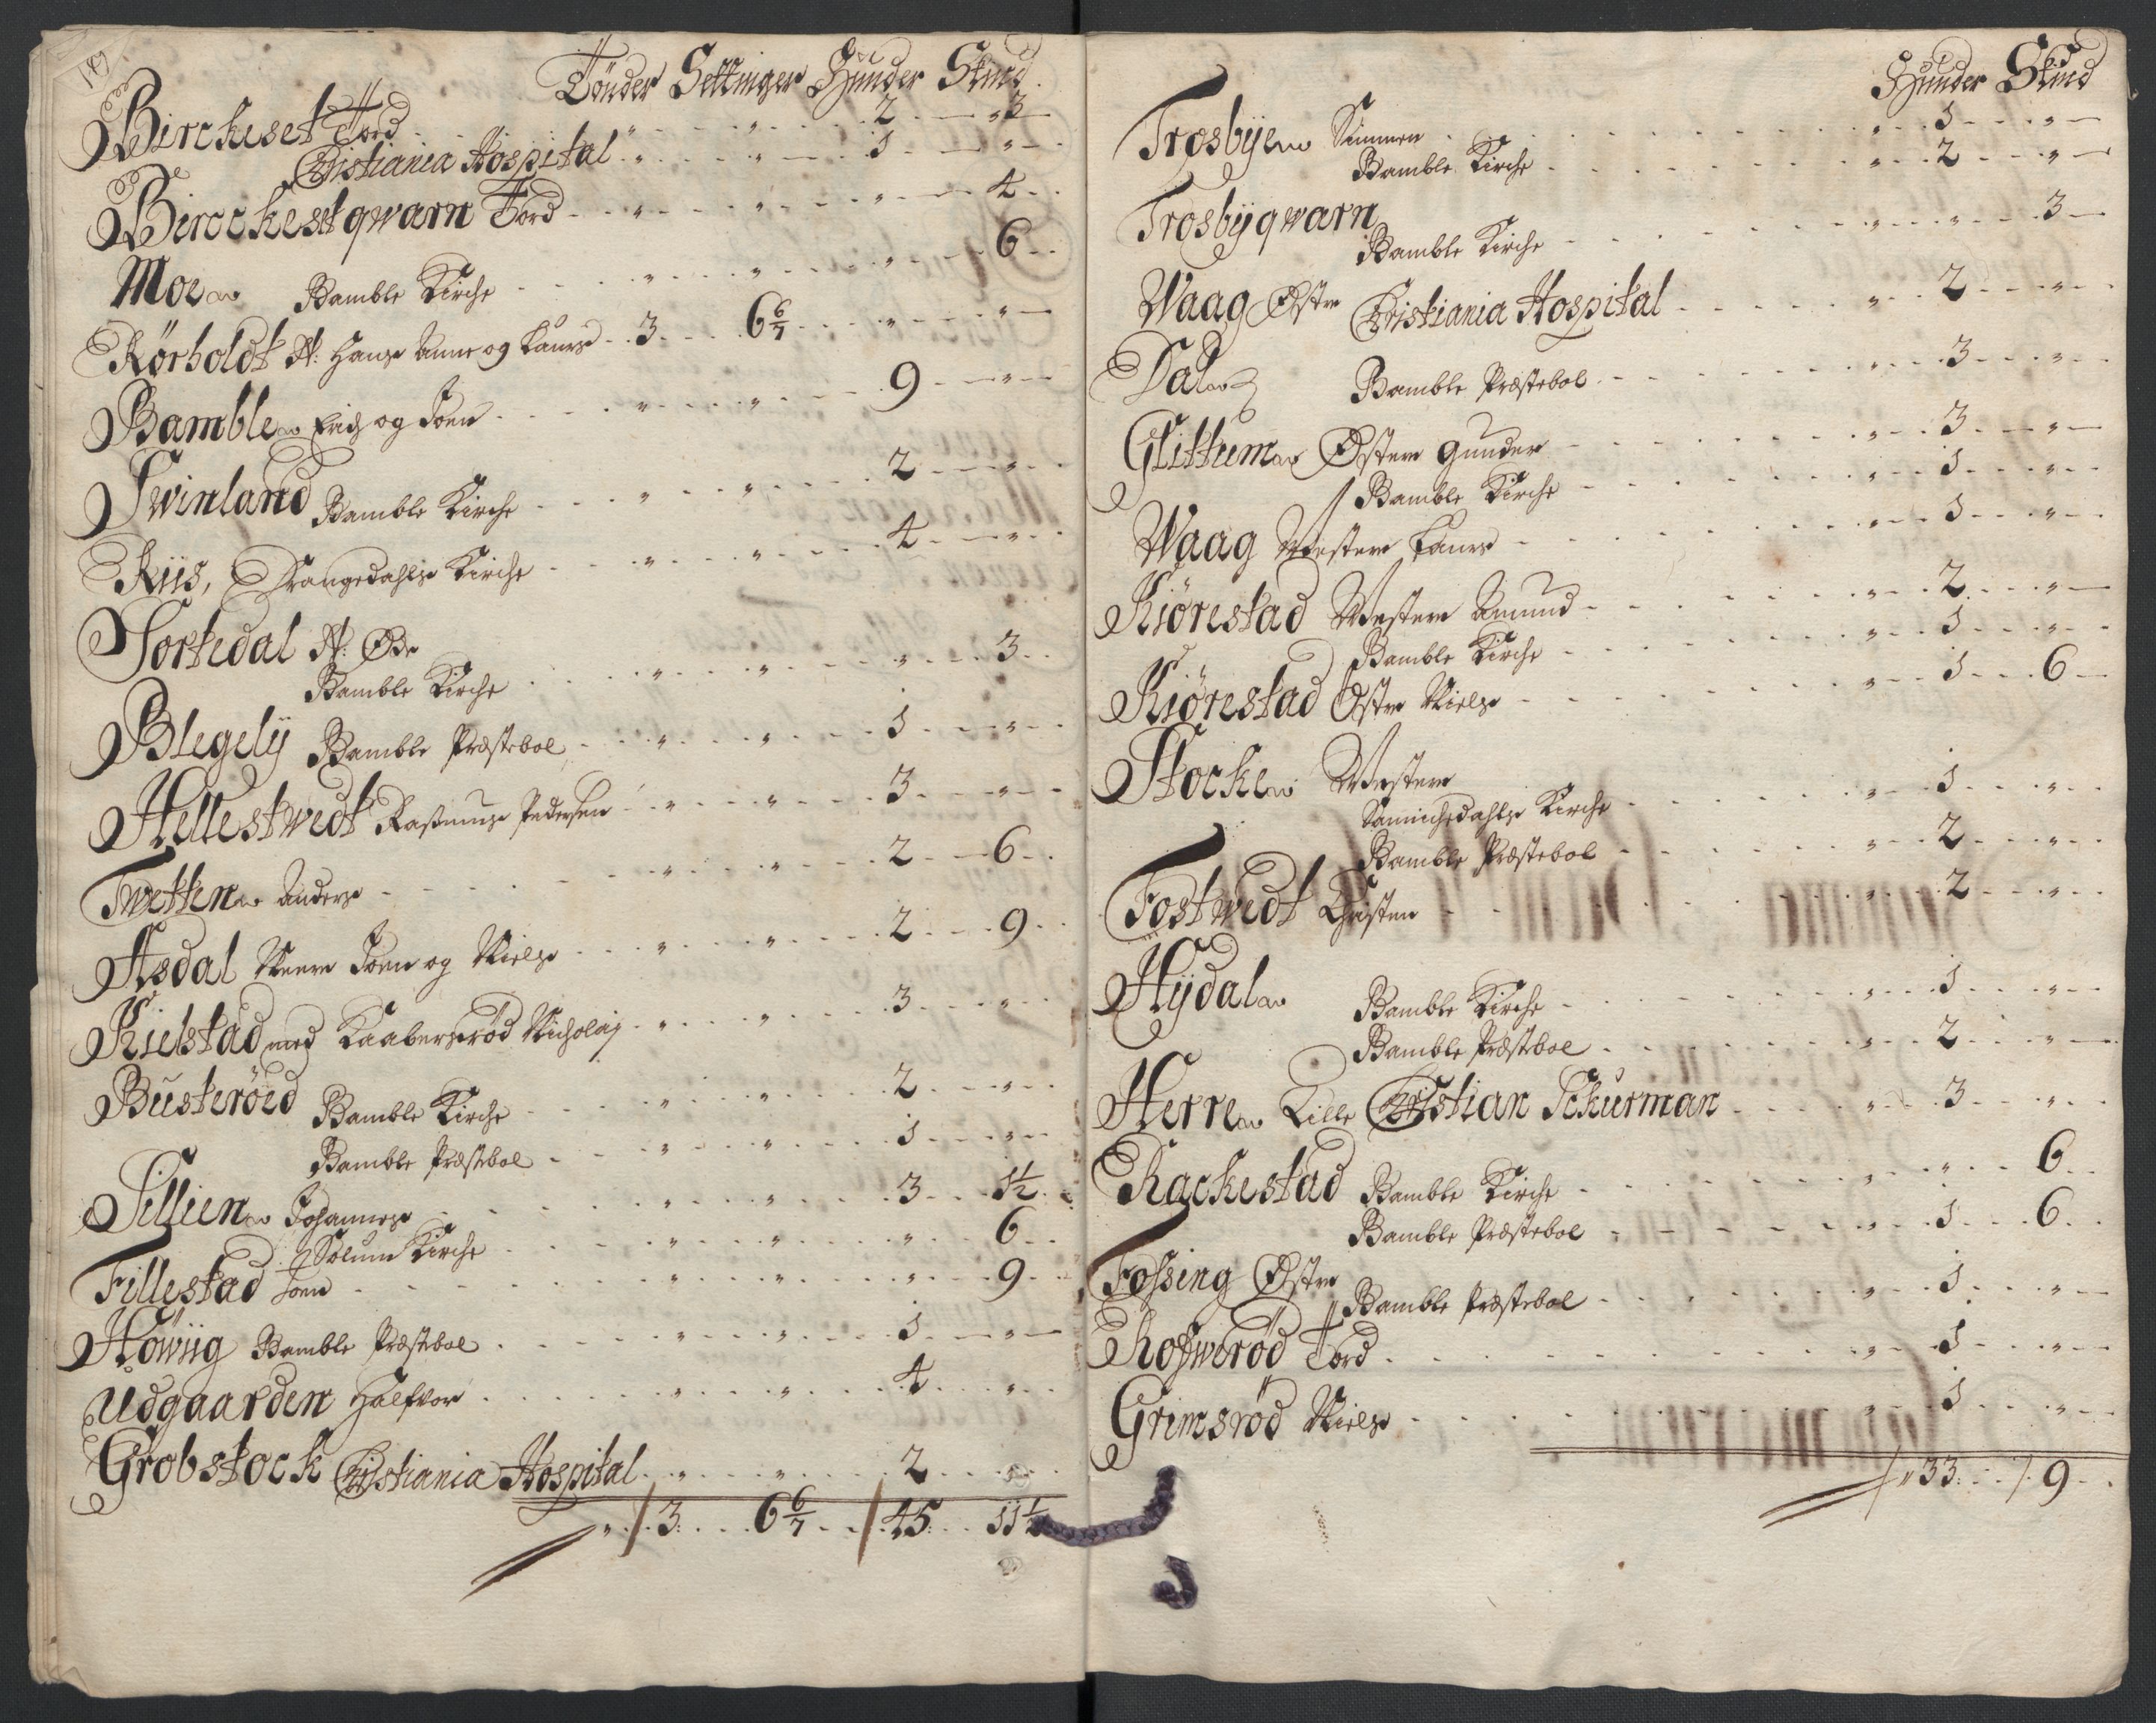 Tönder Settinger Hüuder Skind
Birckeset Tord - - " - - " - - 2 - - 3
Christiania Hospital " - - " - - 1 - - "
Birckesetqwarn Tord - - " - - " - - " - - 4
Moe Bamble Kirche - - " - - " - - " - - 6
Rörholdt N: Hans Anne og Laurs - 3 - - 6 6/7 - - " - - "
Bamble Erich og Joen - - " - - " - - 9 - - "
Swinland Bamble Kirche - - " - - " - - 2 - - "
Riis, Drangedahls Kirche - - " - - " - - 4 - - "
Tortedal N: Øde
Bamble Kirche - - " - - " - - " - - 3
Blegely Bamble Præstebol - - " - - " - - 1 - - "
Hellestwedt Rasmus Pedersen - - " - - " - - 3 - - "
Twetten Anders - - " - - " - - 2 - - 6
Asdal Neere Joen og Niels - - " - - " - - 2 - - 9
Kielstad med Kaabersrød Nicholaj - - " - - " - - 3 - - "
Busteröed Bamble Kirche - - " - - " - - 2 - - "
Bamble Præstebol - - " - - " - - 1 - - "
Sillien Johannes - - " - - " - - 3 - - 1½
Solum Kirche - - " - - " - - " - - 6
Fillestad Joen - - " - - " - - " - - 9
Höwiig Bamble Præstebol - - " - - " - - 1 - - "
Udgaarden Halfvor - - " - - " - - 4 - - "
Grobstock Christiania Hospital - - " - - " - - 2 - - "
" - / 3 - - 6 6/7 - - / 45 - - 11½
Huuder Skind
Trosbye Simmen - - " - - 1 - - "
Bamble Kirche - - " - - 2 - - "
Trosbyqwarn
Bamble Kirche - - " - - " - - 3
Waag Østre Christiania Hospital - - " - - 2 - - "
Dal Bamble Præstebol - - " - - 3 - - "
Glittum Østere Gunder - - " - - 3 - - "
Bamble Kirche - - " - - 1 - - "
Waag Westere Laurs - - " - - 1 - - "
Kiörestad Westere Amund - - " - - 2 - - "
Bamble Kirche - - " - - 1 - - "
Kiörestad Østre Niels - - " - - 1 - - 6
Stocke Westere
Sannichedahls Kirche - - " - - 1 - - "
Bamble Præstebol - - " - - 2 - - "
Fostwedt Christen - - " - - 2 - - "
Hydal Bamble Kirche - - " - - 1 - - "
Bamble Præstebol - - " - - 2 - - "
Herre Lille Christian Schurman - - " - - 3 - - "
Rackestad Bamble Kirche - - " - - " - - 6
Bamble Præstebol - - " - - 1 - - 6
Fossing Østre
Bamble Præstebol - - " - - 1 - - "
Rosswerød Tord - - " - - 1 - - "
Grimsröd Niels - - " - - 1 - - "
/ " 33 - - / 9